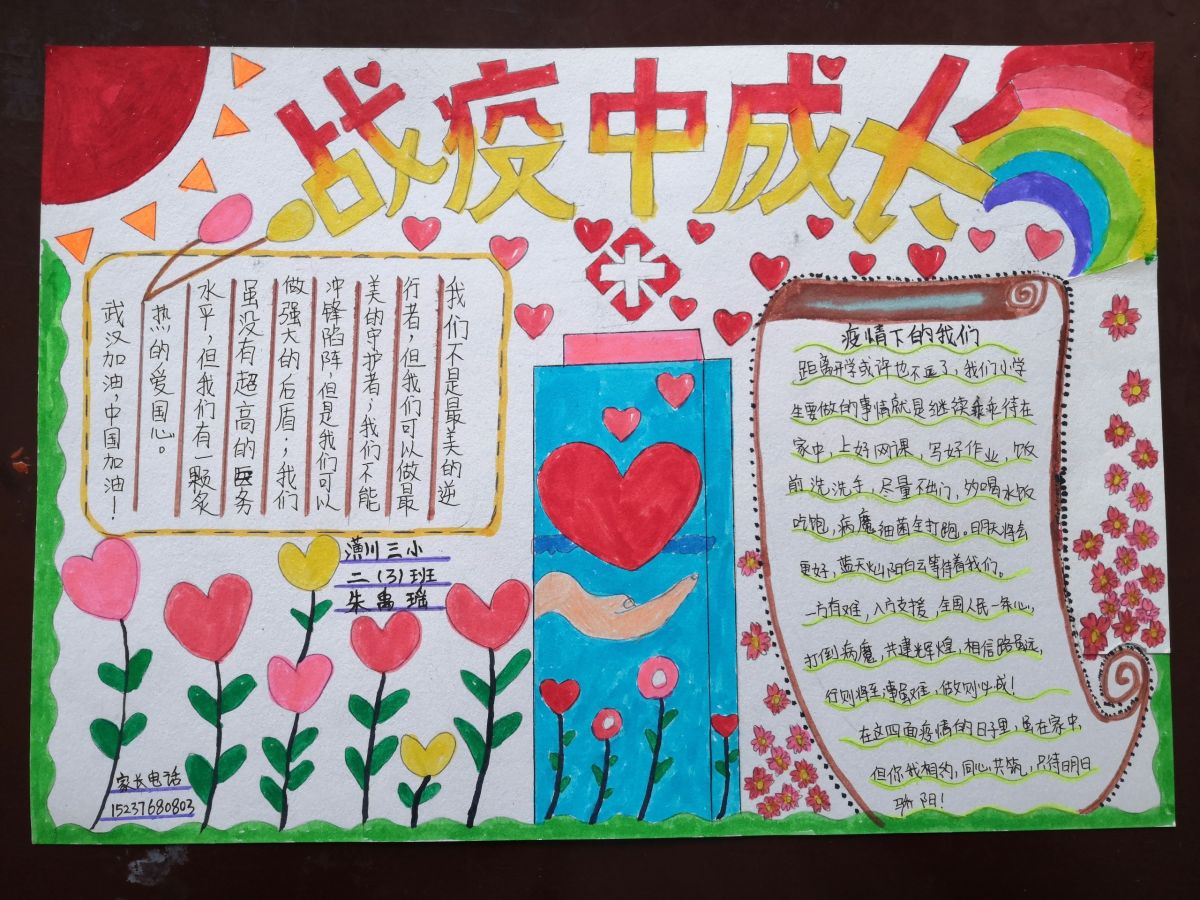 战疫中成长
我们不是最美的逆
行者，但我们可以做最
美的守护者；我们不能
冲锋陷阵，但是我们可以
做强大的后盾；我们
虽没有超高的医务
水平，但我们有一颗炙
热的爱国心。
武汉加油，中国加油！
潢川三小
二（3）班
朱禹瑶
家长电话
15237680803
疫情下的我们
距离开学或许也不远了，我们小学
生要做的事情就是继续乖乖待在
家中，上好网课，写好作业，饭
前洗洗手，尽量不出门，多喝水饭
吃饱，病魔细菌全打跑。明天将会
更好，蓝天灿阳白云等待着我们。
一方有难，八方支援，全国人民一条心，
打倒病魔，共建辉煌，相信路虽远，
行则将至；事虽难，做则必成！
在这四面疫情的日子里，虽在家中，
但你我相约，同心共筑，只待明日
骄阳！